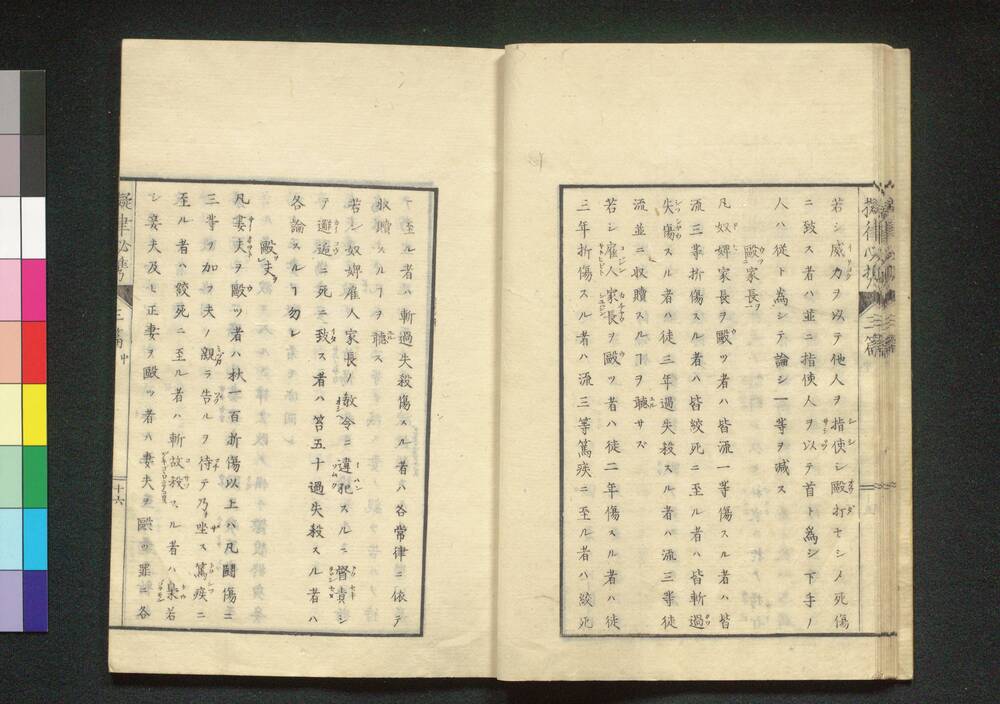 若シ威力ヲ以テ他人ヲ指使シ毆打セシメ死傷
ニ致ス者ハ並ニ指使人ヲ以テ首ト為シ下手ノ
人ハ從ト為シテ論シ一等ヲ減ス
毆家長
凡奴婢家長ヲ毆ツ者ハ皆流一等傷スル者ハ皆
流三等折傷スル者ハ皆絞死ニ至ル者ハ皆斬過
失傷スル者ハ徒三年過失殺スル者ハ流三等徒
流並ニ收贖スルヿヲ聽サズ
若シ雇人家長ヲ毆ツ者ハ徒二年傷スル者ハ徒
三年折傷スル者ハ流三等篤疾ニ至ル者ハ絞死
ニ至ル者ハ斬過失殺傷スル者ハ各常律ニ依テ
收贖スルヿヲ聽ス
若シ奴婢雇人家長ノ教令ニ違犯スルニ督責シ
テ邂逅ニ死ニ致ス者ハ笞五十過失殺スル者ハ
各論スルヿ勿レ
毆夫
凡妻夫ヲ毆ツ者ハ杖一百折傷以上ハ凡鬪傷ニ
三等ヲ加フ夫ノ親ラ告ルヲ待テ乃坐ス篤疾ニ
至ル者ハ絞死ニ至ル者ハ斬故殺スル者ハ梟若
シ妾夫及ヒ正妻ヲ毆ツ者ハ妻夫ヲ毆ツ罪ニ各
三篇 中
十六